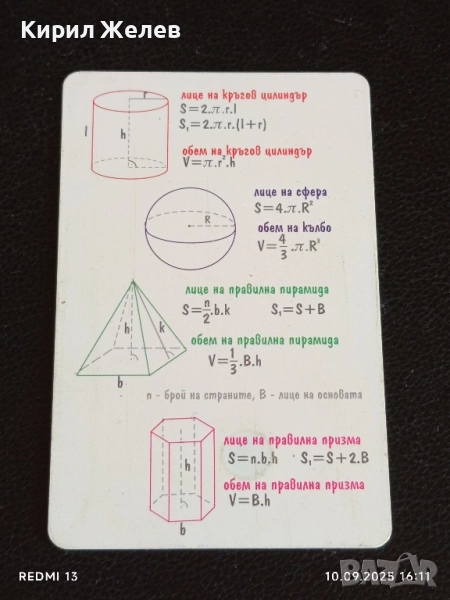 Кирил Желев
r
l
h
лице на кръгов цилиндър
S=2.π.r.l
S₁=2.π.r.(l+r)
обем на кръгов цилиндър
V=π.r².h
R
лице на сфера
S=4.π.R²
обем на кълбо
V=4/3.π.R³
h
k
b
лице на правилна пирамида
S=n/2.b.k S₁=S+B
обем на правилна пирамида
V=1/3.B.h
n - брой на страните, B - лице на основата
h
b
лице на правилна призма
S=n.b.h S₁=S+2.B
обем на правилна призма
V=B.h
REDMI 13
10.09.2025 16:11
BAZAR